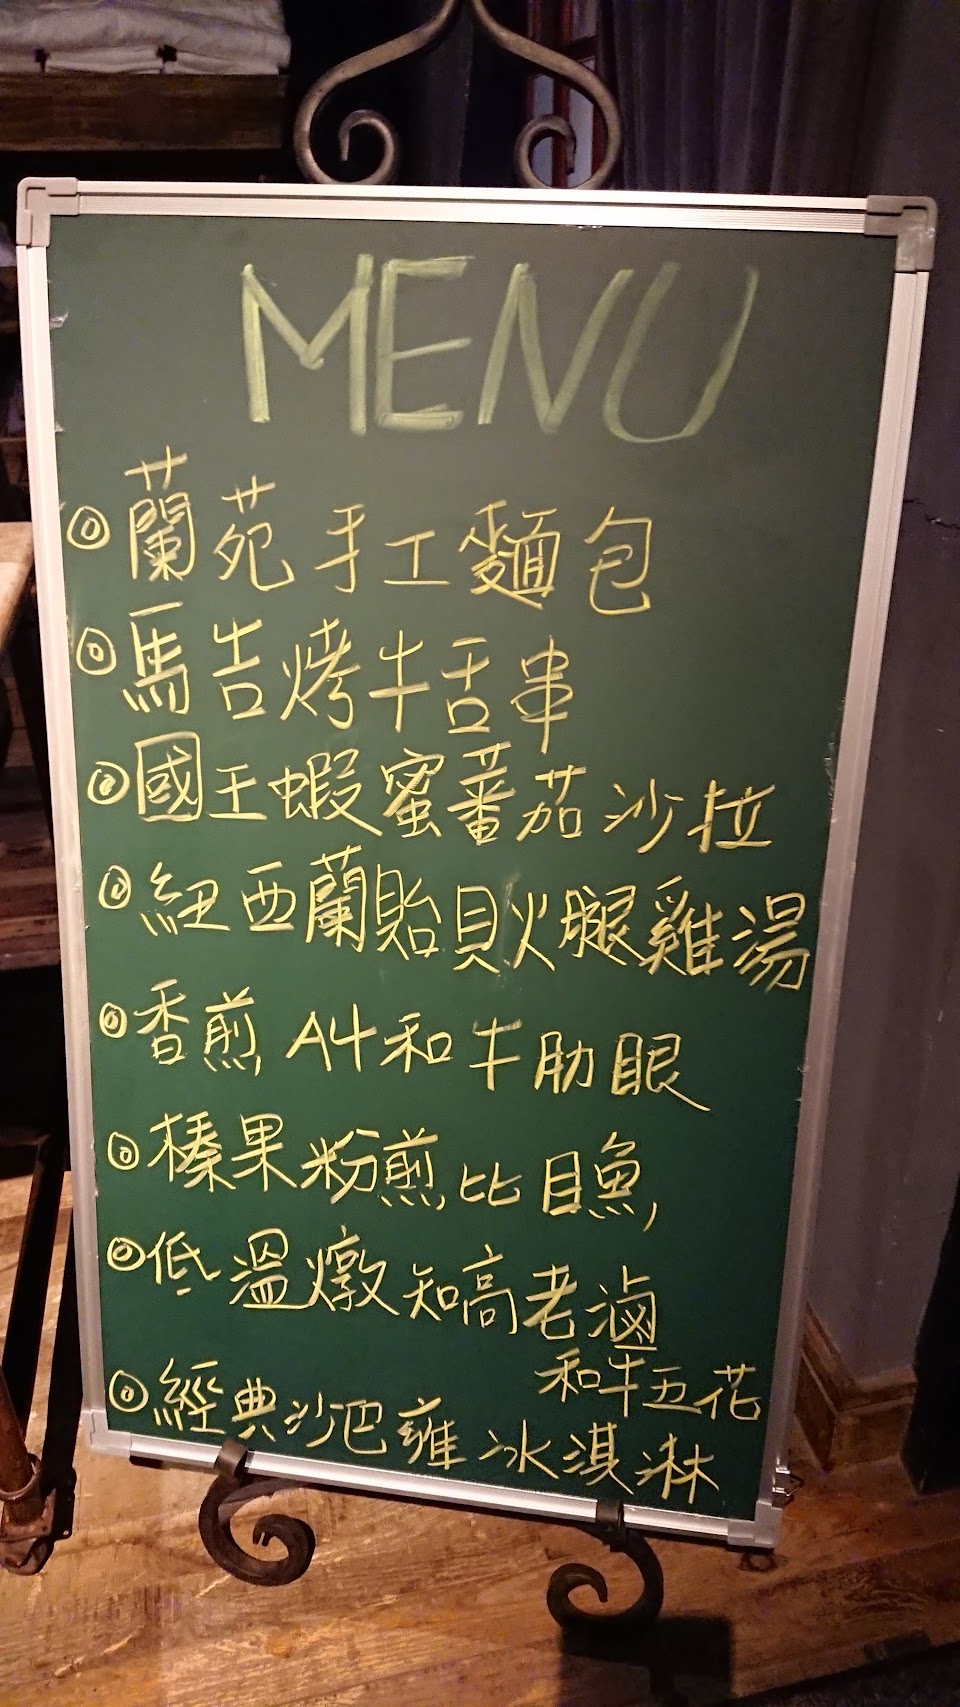 MENU
◎蘭苑手工麵包
◎馬告烤牛舌串
◎國王蝦蜜蕃茄沙拉
◎紐西蘭貽貝火腿雞湯
◎香煎A4和牛肋眼
◎榛果粉煎比目魚
◎低溫燉知高老滷
和牛五花
◎經典沙巴雍冰淇淋